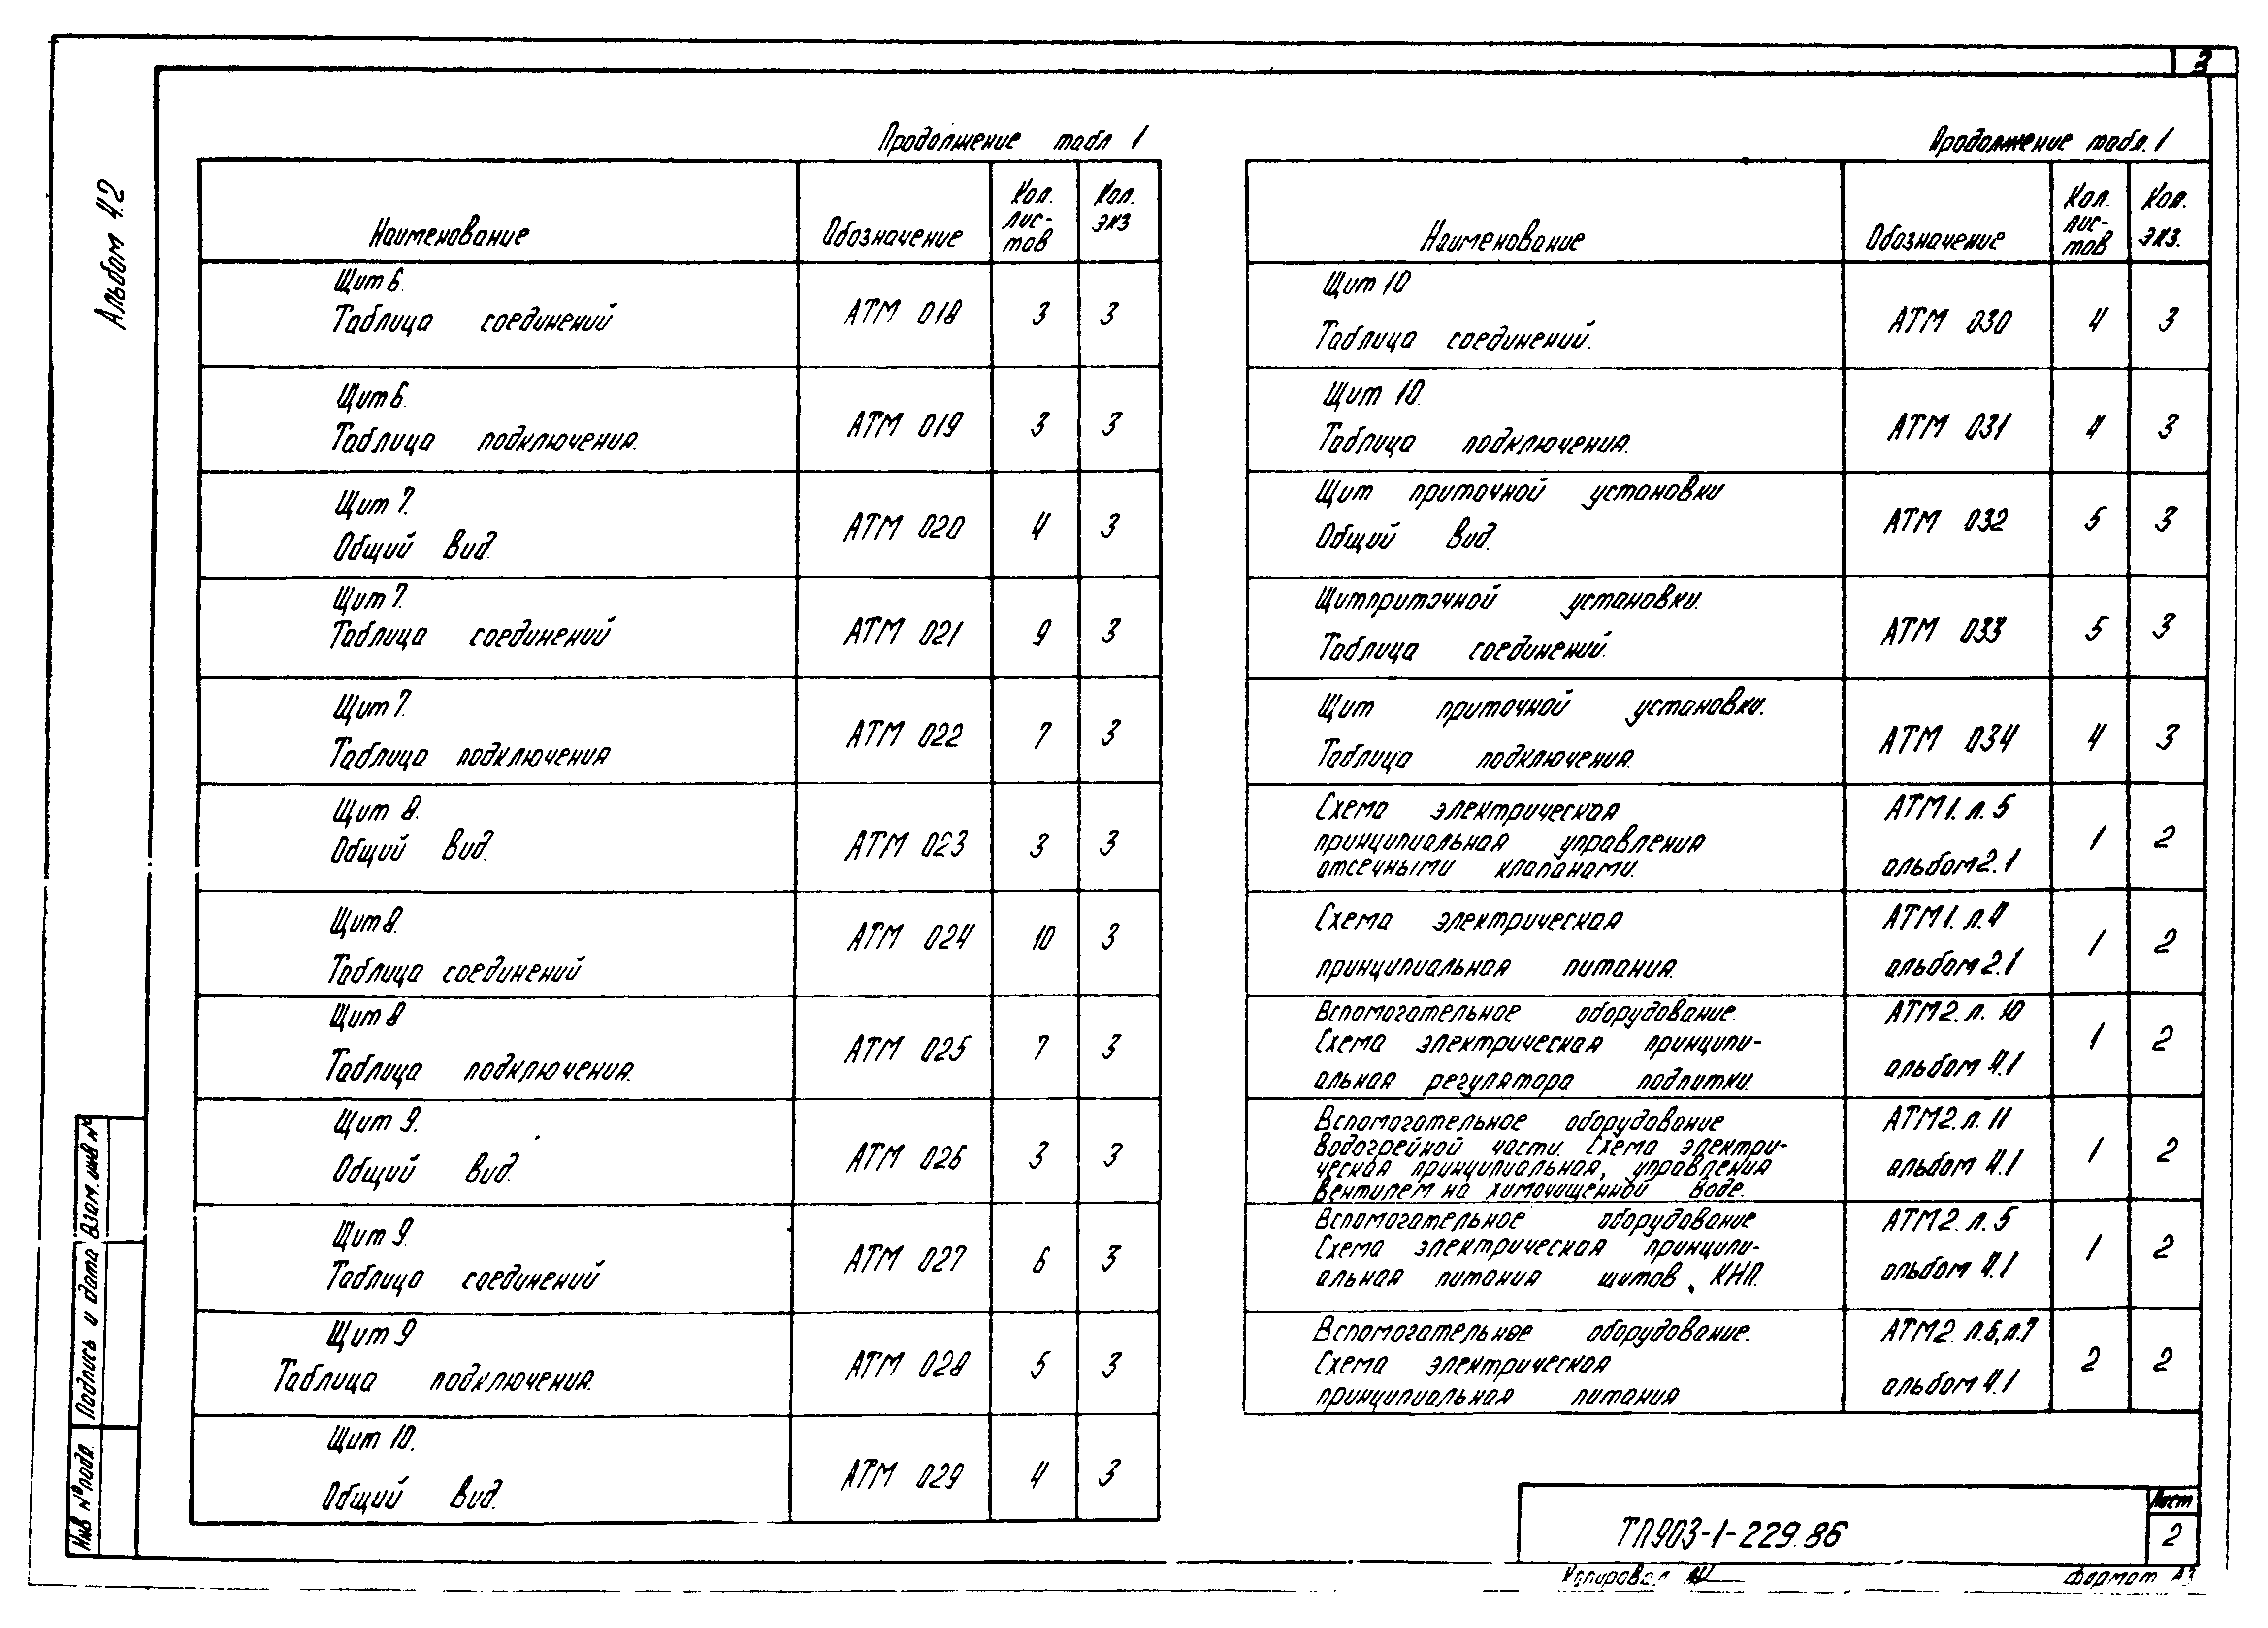 3
Альбом 4.2
Продолжение табл 1
Наименование
Обозначение
Кол. лис-
тов
Кол.
экз
Щит 6.
Таблица соединений
АТМ 018 3 3
Щит 6.
Таблица подключения.
АТМ 019 3 3
Щит 7.
Общий вид.
АТМ 020 4 3
Щит 7.
Таблица соединений
АТМ 021 9 3
Щит 7.
Таблица подключения
АТМ 022 7 3
Щит 8.
Общий вид.
АТМ 023 3 3
Щит 8.
Таблица соединений
АТМ 024 10 3
Щит 8
Таблица подключения.
АТМ 025 7 3
Щит 9.
Общий вид.
АТМ 026 3 3
Щит 9.
Таблица соединений
АТМ 027 6 3
Щит 9
Таблица подключения.
АТМ 028 5 3
Щит 10.
Общий вид.
АТМ 029 4 3
Продолжение табл. 1
Наименование
Обозначение
Кол.
лис-
тов
Кол.
экз.
Щит 10
Таблица соединений.
АТМ 030 4 3
Щит 10.
Таблица подключения.
АТМ 031 4 3
Щит приточной установки
Общий вид.
АТМ 032 5 3
Щит приточной установки.
Таблица соединений.
АТМ 033 5 3
Щит приточной установки.
Таблица подключения.
АТМ 034 4 3
Схема электрическая
принципиальная управления
отсечными клапанами.
АТМ1. л. 5
альбом 2.1
1 2
Схема электрическая
принципиальная питания.
АТМ1. л. 4
альбом 2.1
1 2
Вспомогательное оборудование.
Схема электрическая принципи-
альная регулятора подпитки.
АТМ2. л. 10
альбом 4.1
1 2
Вспомогательное оборудование
водогрейной части. Схема электри-
ческая принципиальная, управления
вентилем на химочищенной воде.
АТМ2. л. 11
альбом 4.1
1 2
Вспомогательное оборудование
Схема электрическая принципи-
альная питания щитов, КИП.
АТМ2. л. 5
альбом 4.1
1 2
Вспомогательное оборудование.
Схема электрическая
принципиальная питания
АТМ2. л.6, л.7
альбом 4.1
2 2
Инв № подл.
Подпись и дата
Взам. инв №
ТП903-1-229.86
Лист
2
Копировал
Формат А3